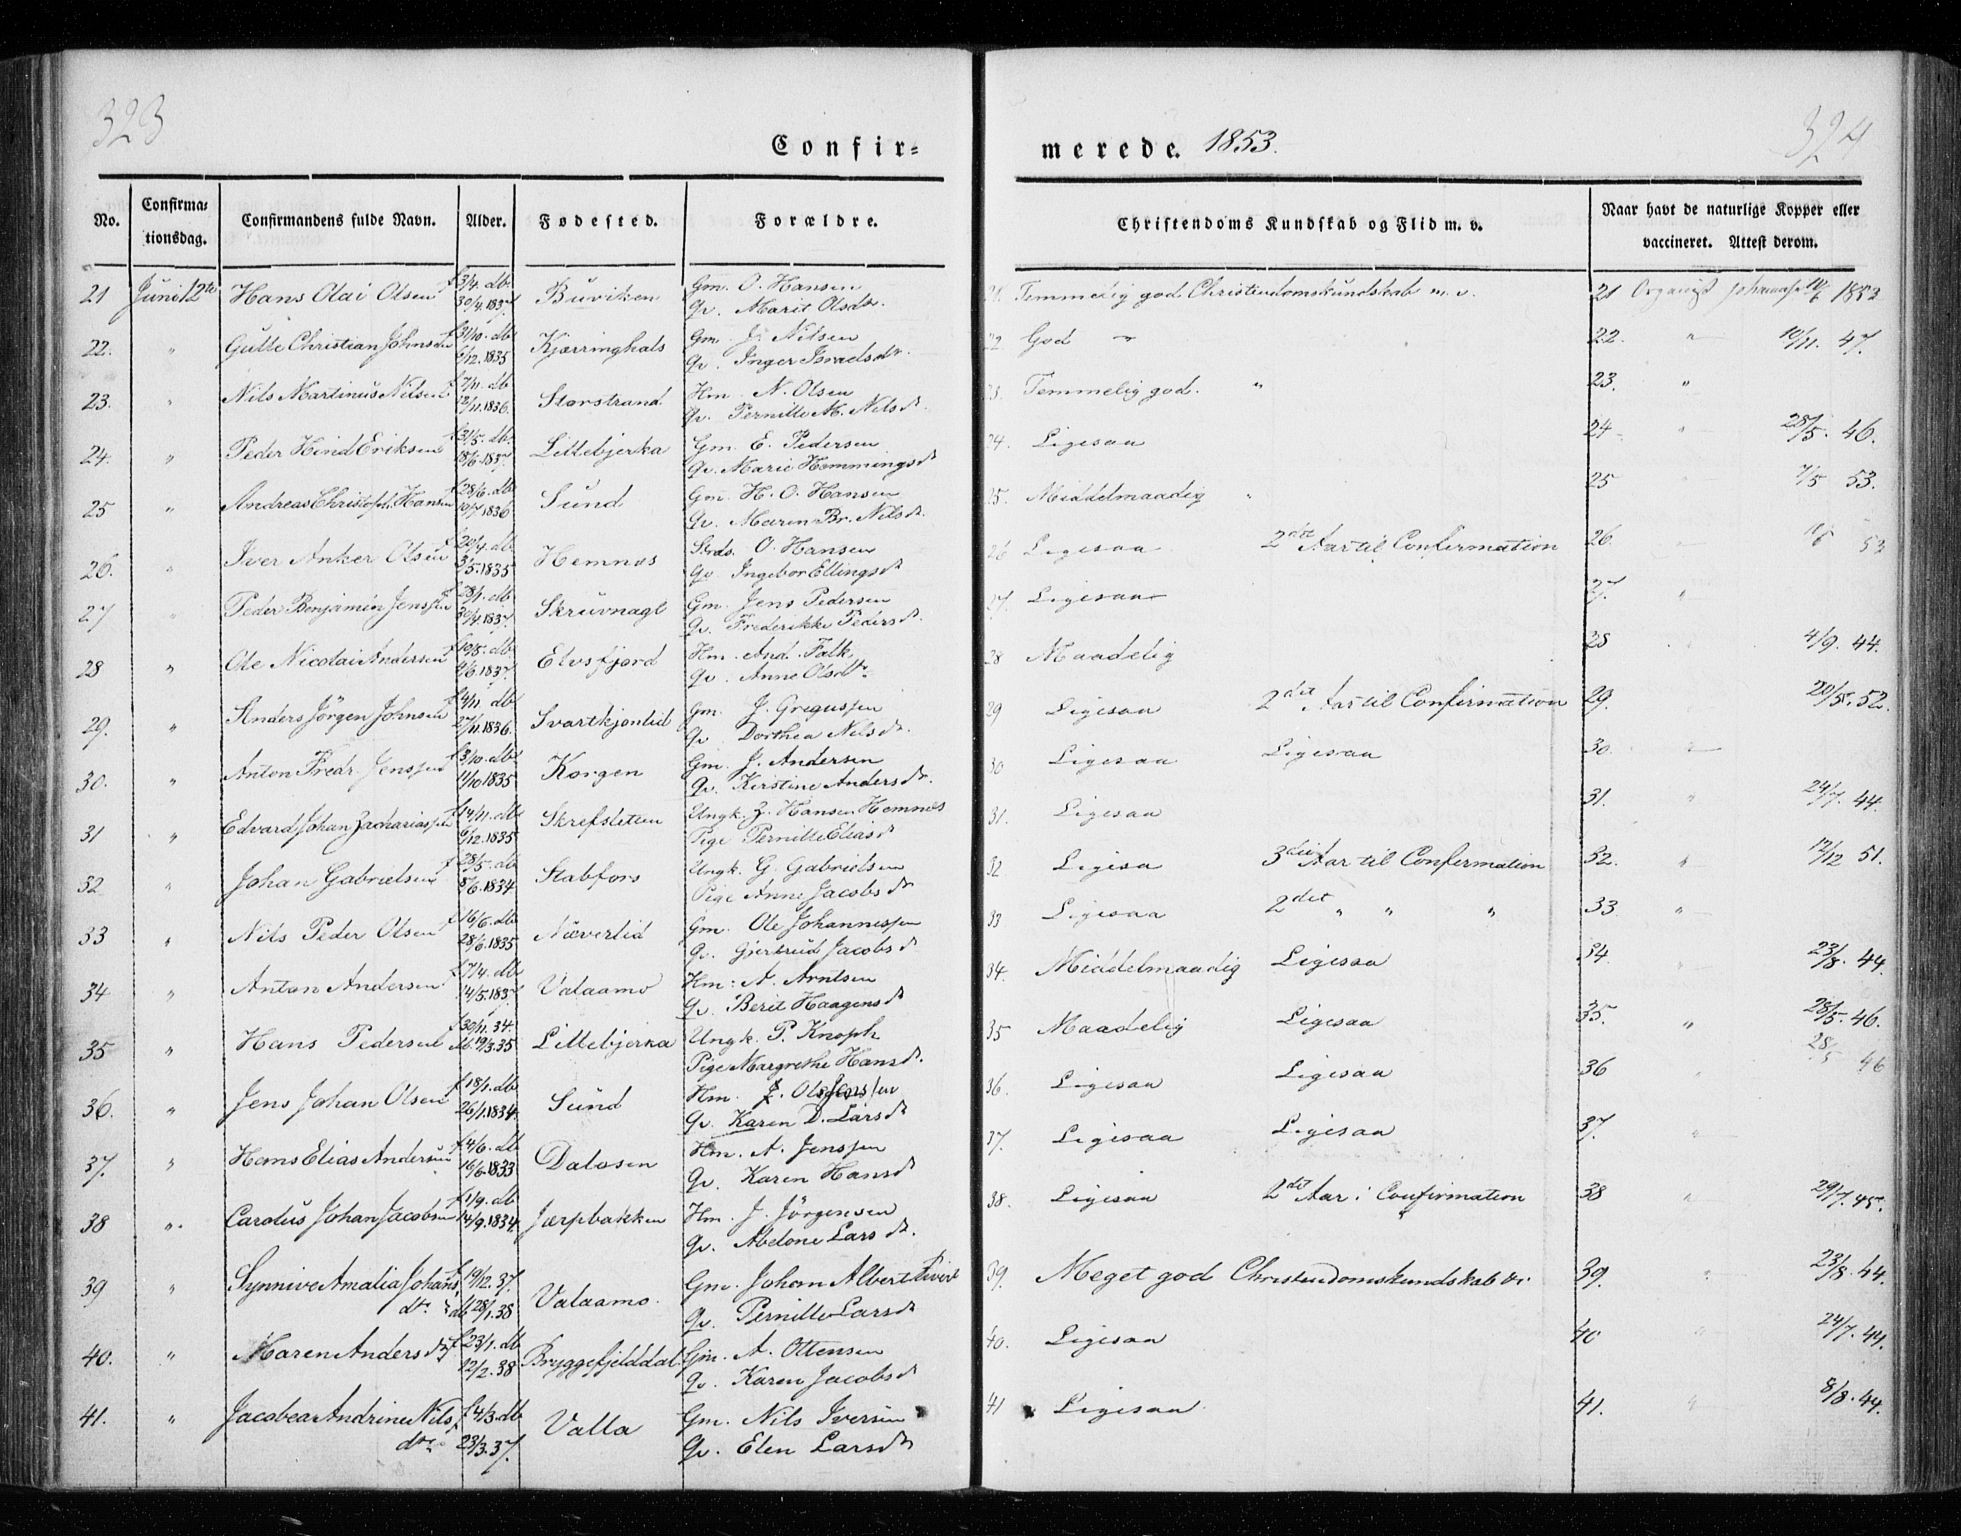 323
Confir-
No. Confirma- tionsdag. Confirmandens fulde Navn. Alder. Fødested. Forældre.
21 Juni 12te Hans Olai Olsen f 3/4. db. 30/4.1837 Buviken Gm. O. Hansen
Qv. Marit Olsdr.
22. " Gutte Christian Johnsen f 31/10. db 6/12.1835 Kjærringhals Gm. J. Nilsen
Qv. Inger Israelsdr.
23. " Nils Martinus Nilsen f 7/11. db 12/11.1836. Storstrand Hm N. Olsen
Qv. Pernille M. Nilsdr.
24. " Peder Hind Eriksen f 31/5. db. 18/6.1837. Littebjerka Gm. E. Pedersen
Qv. Marie Hemmingsdr
25 " Andreas Christoph. Hansen f 28/6. db 10/7.1836 Sund Gm. H. O. Hansen
Qv. Maren Br. Nilsdr.
26. " Iver Anker Olsen f 20/4. db 3/5.1835 Hemnæs Strds. O. Hansen
Qv. Ingebor Ellingsdr
27 " Peder Benjamin Jenssen f 28/1. db 30/4.1837. Skruvnagl Gm. Jens Pedersen
Qv. Frederikke Pedersdr.
28 " Ole Nicolai Andersen f 19/5. db 9/6.1837. Elvsfjord Hm. And. Falk
Qv. Anne Olsdtr
29. " Anders Jörgen Johnsen f 4/11 db 27/11.1836. Svartkjønlid Gm. J. Gregussen
Qv. Dorthea Nilsdr.
30. " Anton Fredr. Jenssen f 3/10. db 11/10.1835 Korgen Gm. J. Andersen
Qv. Kirstine Andersdr.
31 " Edvard Johan Zachariassen f 14/11. db 6/12.1835 Skrefsletten Ungk. Z. Hansen Hemnæs
Pige Pernille Eliasdr
32 " Johan Gabrielsen f 28/5. db 8/6.1834 Stabfors Ungk. G. Gabrielsen
Pige Anne Jacobsdr
33 " Nils Peder Olsen f 16/6. db 28/6.1835 Næverlid Gm. Ole Johannessen
Qv. Gjertrud Jacobsdr
34 " Anton Andersen f 7/4. db 14/5.1837 Valaamo Hm: A. Arntsen
Qv. Berit Haagensdr
35 " Hans Pedersen f 30/11. 34. db. 19/3.35 Littebjerka Ungk. P. Knoph
Pige Margrethe Hansdr.
36. " Jens Johan Olsen f 18/1. db 26/1.1834. Sund Hm. Jenssen
Qv. Karen D. Larsdr
37. " Hans Elias Andersen f 4/6. db 16/6.1833 Dalosen Hm. A. Jenssen
Qv. Karen Hansdr
38 " Carolus Johan Jacobsen f 1/9. db 14/9.1834. Jærpbakken Hm. J. Jörgensen
Qv. Abelone Larsdr.
39 " Synnive Amalia Johans f 19/12. 37. Valaamo. Gm. Johan Albert
dtr. db 28/1.38 Qv. Pernille Larsdr
40. " Maren Andersdtr f 23/1. db 12/2.38 Bryggefjelddal Gm. A. Ottensen
Qv. Karen Jacobsdr
41. " Jacobea Andrine Nils f 4/3. db Valla Gm. Nils Iversen
dtr. 23/3.37. Qv. Elen Larsdr
324
merede. 1853.
Christendoms Kundskab og Flid m. v. Naar havt de naturlige Kopper eller vaccineret. Attest derom.
21. Temmelig god Christendomskundskab m. v. 21 Organist 1853
22. God " 22. " 10/11. 47.
23. Temmelig god. " 23. "
24. Ligesaa 24 " 28/5. 46.
25. Middelmaadig " 25 " 7/5 53.
26 Ligesaa 2det Aar til Confirmation 26. " 53
27. Ligesaa 27. "
28 Maadelig 28 4/9. 44.
29 Ligesaa 2det Aar til Confirmation 29. " 20/5. 52.
30 Ligesaa Ligesaa 30. "
31. Ligesaa 31. " 24/7. 44.
32 Ligesa 3die Aar til Confirmation 32. " 12/12 51.
33 Ligesaa 2det " " " 33 "
34. Middelmaadig Ligesaa 34 23/8. 44.
35 Maadelig Ligesaa 35. " 28/5. 46.
36. Ligesaa Ligesaa 36 " 28/5 46
37. Ligesaa Ligesaa 37. "
38. Ligesaa 2det Aar i Confirmation 38 " 29/7. 45.
39. Meget god Christendomskundskab &. 39. " 23/8. 44.
40. Ligesaa 40 " 24/7. 44.
41 Ligesaa. 41. " 8/8. 44.